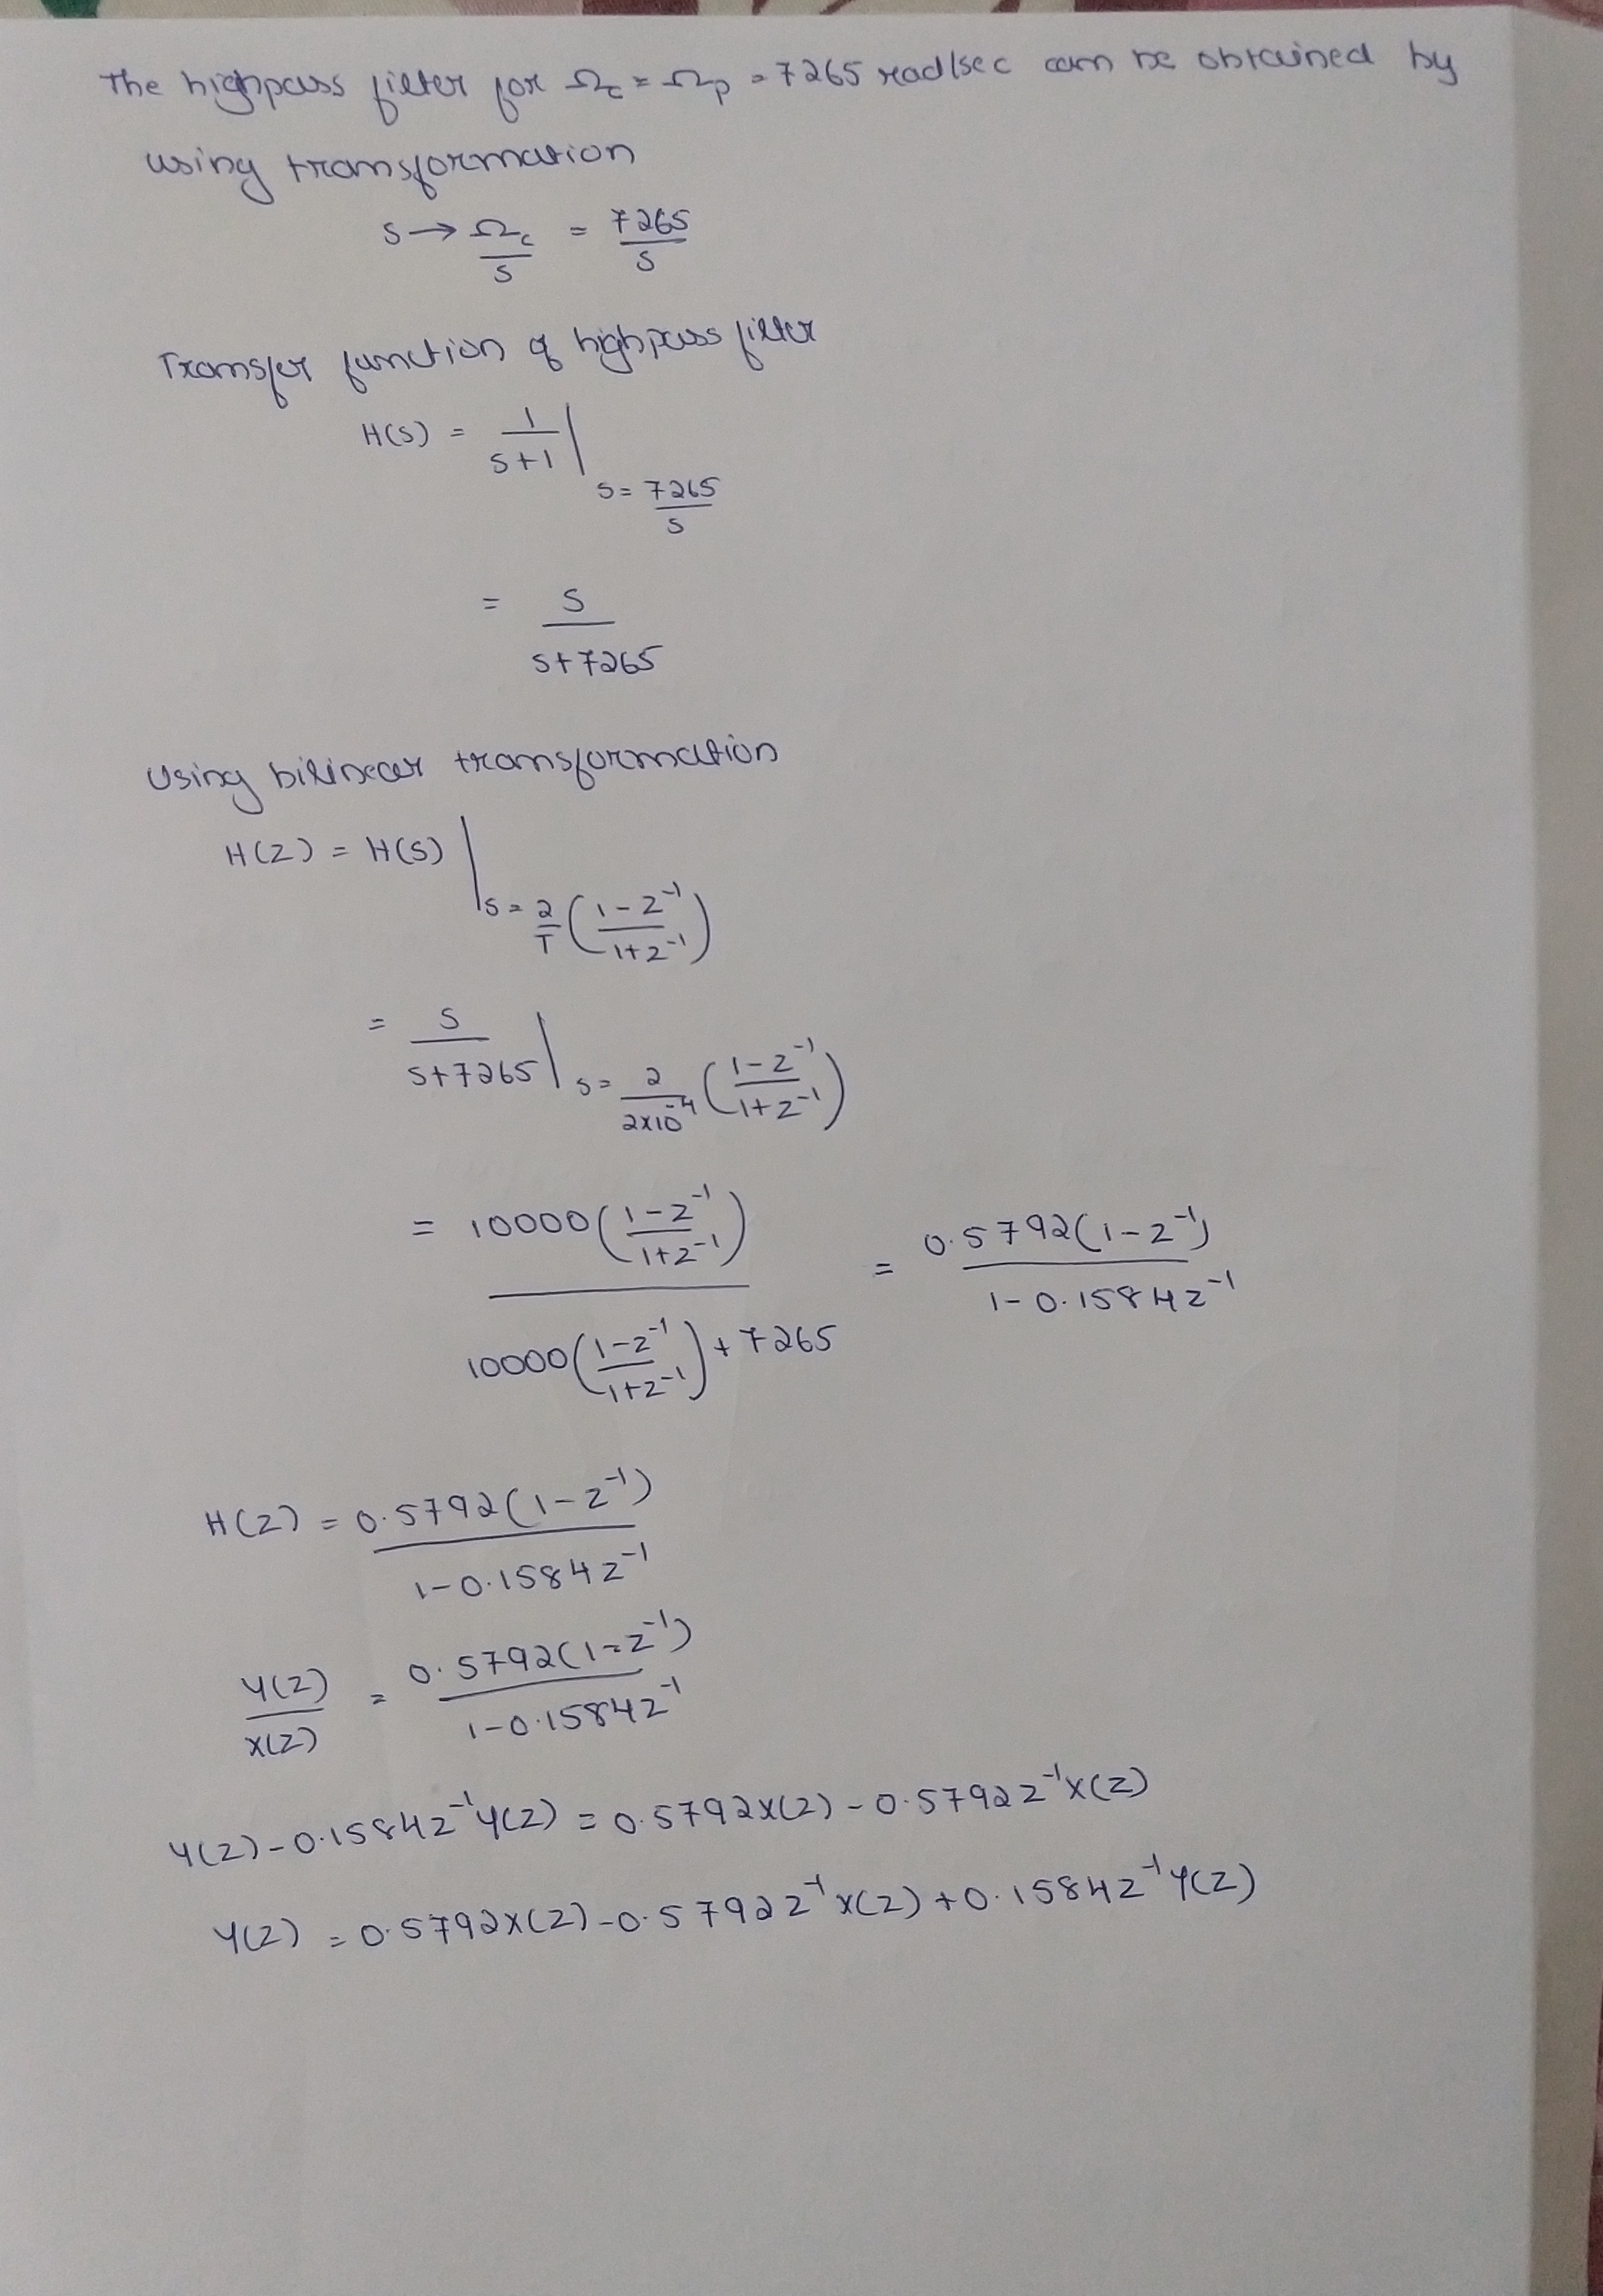 The highpass filter for Ωc = Ωp = 7265 rad/sec can be obtained by
using transformation
s → Ωc/s = 7265/s
Transfer function of highpass filter
H(s) = 1/(s+1) | s = 7265/s
= s/(s+7265)
Using bilinear transformation
H(z) = H(s) | s = 2/T ((1-z⁻¹)/(1+z⁻¹))
= s/(s+7265) | s = 2/(2×10⁻⁴) ((1-z⁻¹)/(1+z⁻¹))
= 10000((1-z⁻¹)/(1+z⁻¹)) / (10000((1-z⁻¹)/(1+z⁻¹)) + 7265) = 0.5792(1-z⁻¹)/(1-0.1584z⁻¹)
H(z) = 0.5792(1-z⁻¹)/(1-0.1584z⁻¹)
Y(z)/X(z) = 0.5792(1-z⁻¹)/(1-0.1584z⁻¹)
Y(z)-0.1584z⁻¹Y(z) = 0.5792X(z)-0.5792z⁻¹X(z)
Y(z) = 0.5792X(z)-0.5792z⁻¹X(z)+0.1584z⁻¹Y(z)